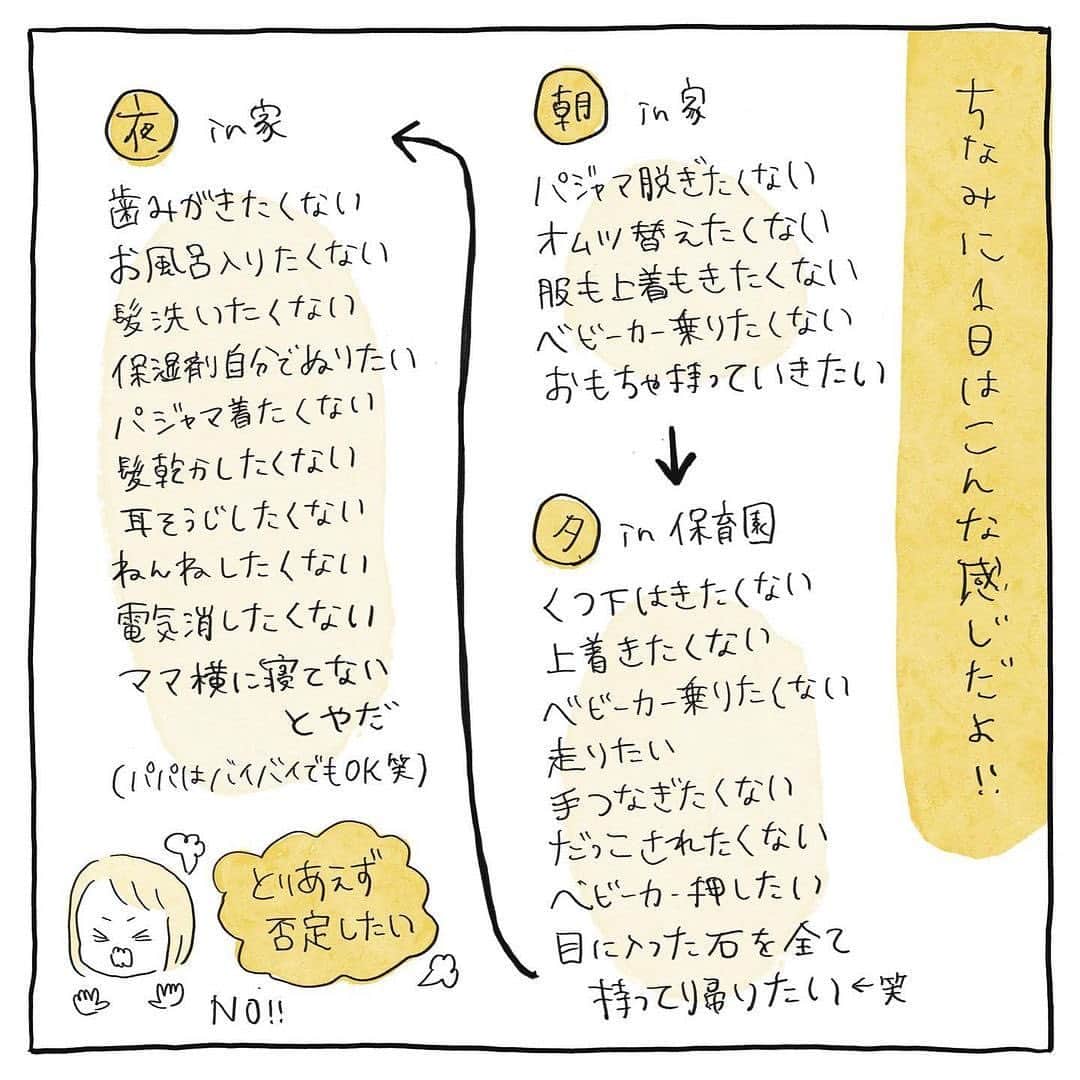 ちなみに1日はこんな感じだよ!!
朝 in家
パジャマ脱ぎたくない
オムツ替えたくない
服も上着もきたくない
ベビーカー乗りたくない
おもちゃ持っていきたい
夕 in保育園
くつ下はきたくない
上着きたくない
ベビーカー乗りたくない
走りたい
手つなぎたくない
だっこされたくない
ベビーカー押したい
目に入った石を全て
持ってり帰りたい←笑
夜 in家
歯みがきたくない
お風呂入りたくない
髪洗いたくない
保湿剤自分でぬりたい
パジャマ着たくない
髪乾かしたくない
耳そうじしたくない
ねんねしたくない
電気消したくない
ママ横に寝てない
とやだ
(パパはバイバイでもOK笑)
とりあえず
否定したい
NO!!